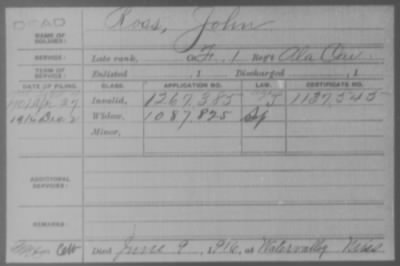 DEAD
NAME OF SOLDIER: Ross, John
SERVICE: Late rank, Co. F, 1 Reg't Ala Cav
TERM OF SERVICE: Enlisted , 1 Discharged , 1
DATE OF FILING. CLASS. APPLICATION NO. LAW. CERTIFICATE NO.
1901 Apr 27 Invalid, 1267,385 1137,545
1916 Dec 2 Widow, 1087,825
Minor,
ADDITIONAL SERVICES:
REMARKS:
Died June 9, 1916, at Watervalley Miss